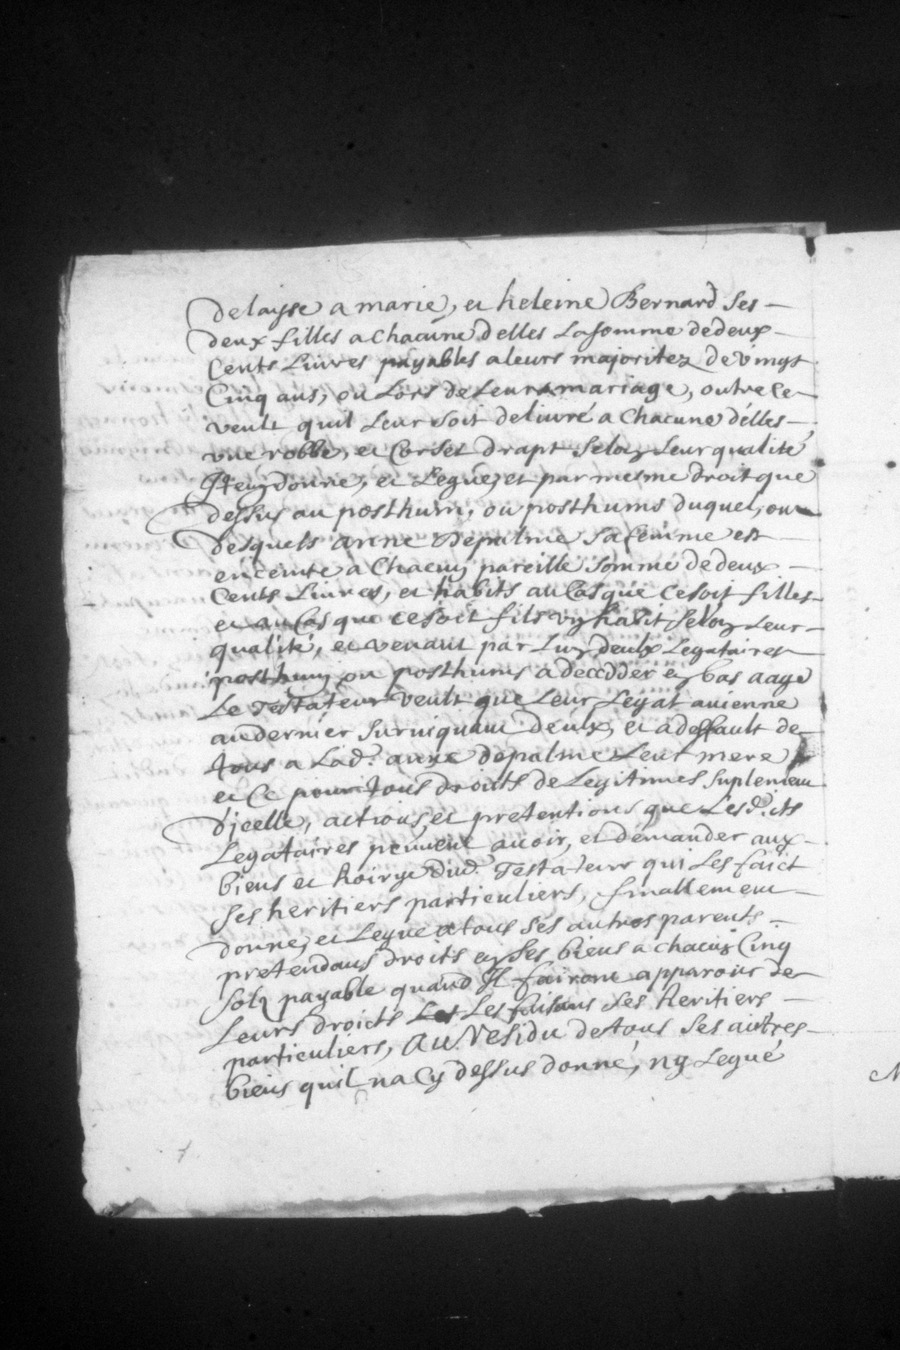 delaysse a marie, et heleine Bernard ses
deux filles a Chacune delles La somme dedeux
Cents Livres payables aleurs majoritez de vingt
Cinq ans, ou Lors de Leur mariage, outre Ce
veult quil Leur soit delivré a Chacune delles
une robbe, et Corset drapt selon Leur qualité
Item donne, et Legue, et par mesme droit que
dessus au posthum, ou posthums duquel, ou
desquels anne depalme sa femme est
enceinte a Chacun pareille somme dedeux
Cents Livres, et habits au Cas que Ce soit filles
et au Cas que Ce soit fils un habit selon Leur
qualité, et venant par Luy deulx Legataires
posthum ou posthums a decedder en bas aage
Le Testateur veult que Leur Legat avienne
audernier survivquant deulx, et a deffault de
tous a Lad. anne depalme Leur mere
et Ce pour tous droits de Legitimes suplement
djcelle, actions, et pretentions que Lesd.its
Legataires peuvent avoir, et demander aux
biens et hoirye dud. Testateur qui Les faict
ses heritiers particuliers, finallement
donne, et Legue a tous ses autres parents
pretendans droits en ses biens a chacun Cinq
solz payable quand Jl fairont apparoir de
Leurs droicts Les faisans ses heritiers
particuliers, Au Residu detous ses autres
biens quil na Cy dessus donné, ny Legué